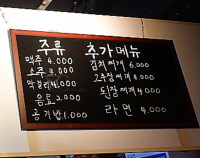 주류
맥주 4.000
소주 3.000
막걸리 4.000
음료 2.000
공기밥 1.000
추가메뉴
김치찌개 6.000
고추장찌개 8.000
된장찌개 4.000
라면 4.000